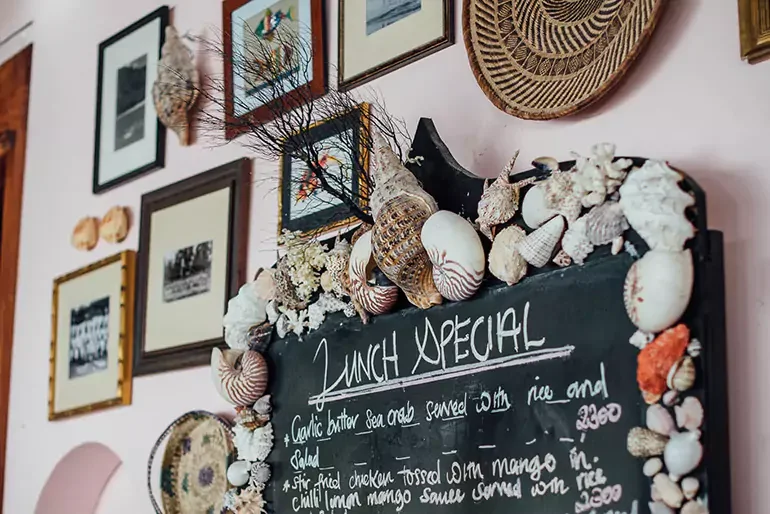 Lunch Special
* Garlic butter sea crab served with rice and
salad 2300
* Stir fried chicken tossed with mango in
chilli lemon mango sauce served with rice
2200